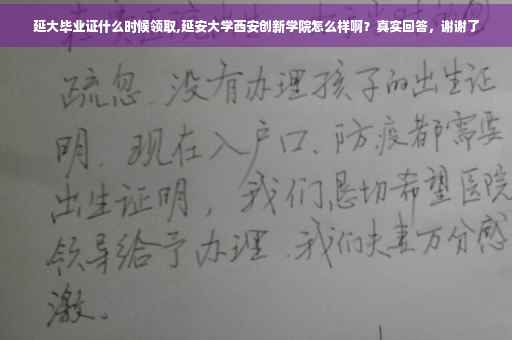 延大毕业证什么时候领取,延安大学西安创新学院怎么样啊？真实回答，谢谢了
疏忽、没有办理孩子的出生证
明、现在入户口、防疫都需要
出生证明，我们恳切希望医院
领导给予办理、我们夫妻万分感
激。